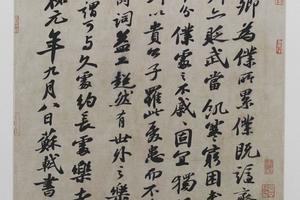 卿為僕所累僕既謫齊
亦貶武當飢寒窮困本書
分僕處之不戚戚固宜獨
以貴公子罹此憂患而不
詩詞益工超然有世外之樂
謂可與久處約長處樂者
祐元年九月八日蘇軾書